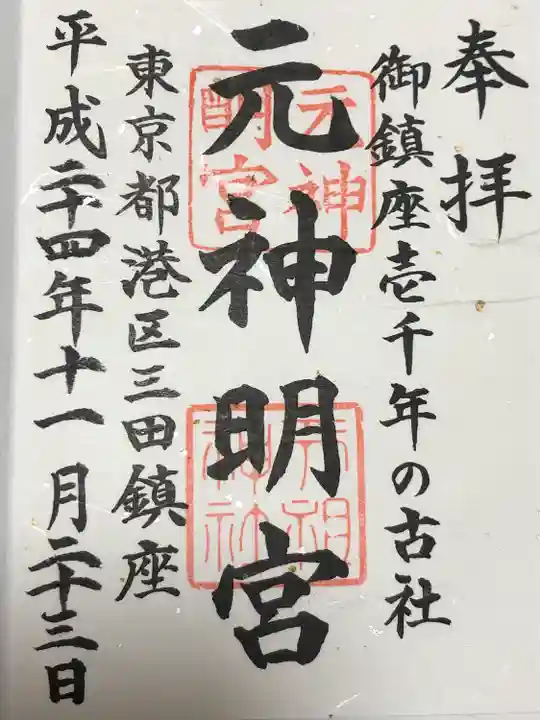 奉拝
御鎮座壱千年の古社
元神明宮
元神
明宮
東京都港区三田鎮座
平成二十四年十一月二十三日